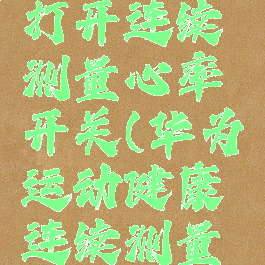 打开连续
测量心率
开关(华为
运动健康
连续测量